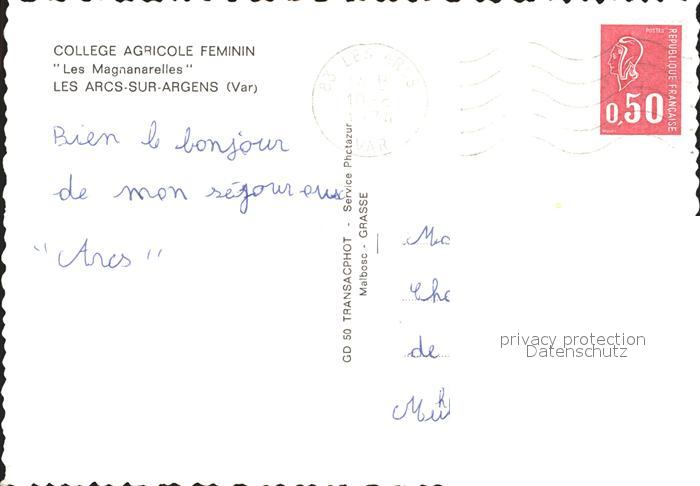 COLLEGE AGRICOLE FEMININ
"Les Magnanarelles"
LES ARCS-SUR-ARGENS (Var)
Bien le bonjour
de mon séjour aux
"Arcs"
GD 50 TRANSACPHOT - Service Photazur
Malbosc - GRASSE
83 LES ARCS
VAR
POSTES
REPUBLIQUE FRANÇAISE
0,50
de
privacy protection
Datenschutz